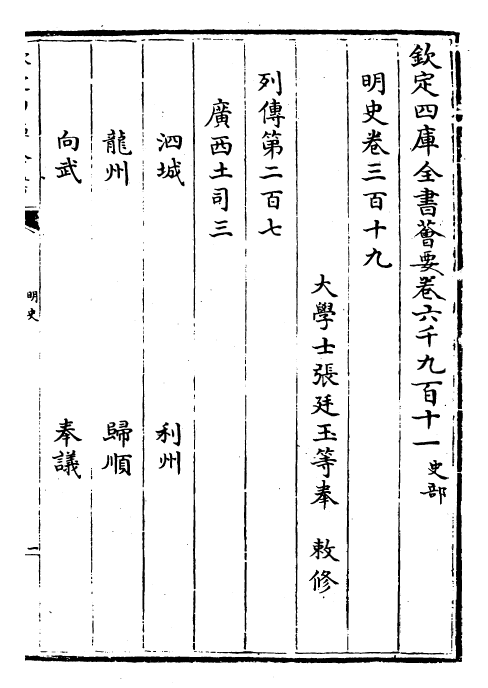 欽定四庫全書薈要卷六千九百十一 史部
明史卷三百十九
大學士張廷玉等奉 敕修
列傳第二百七
廣西土司三
泗城 利州
龍州 歸順
向武 奉議
明史
一